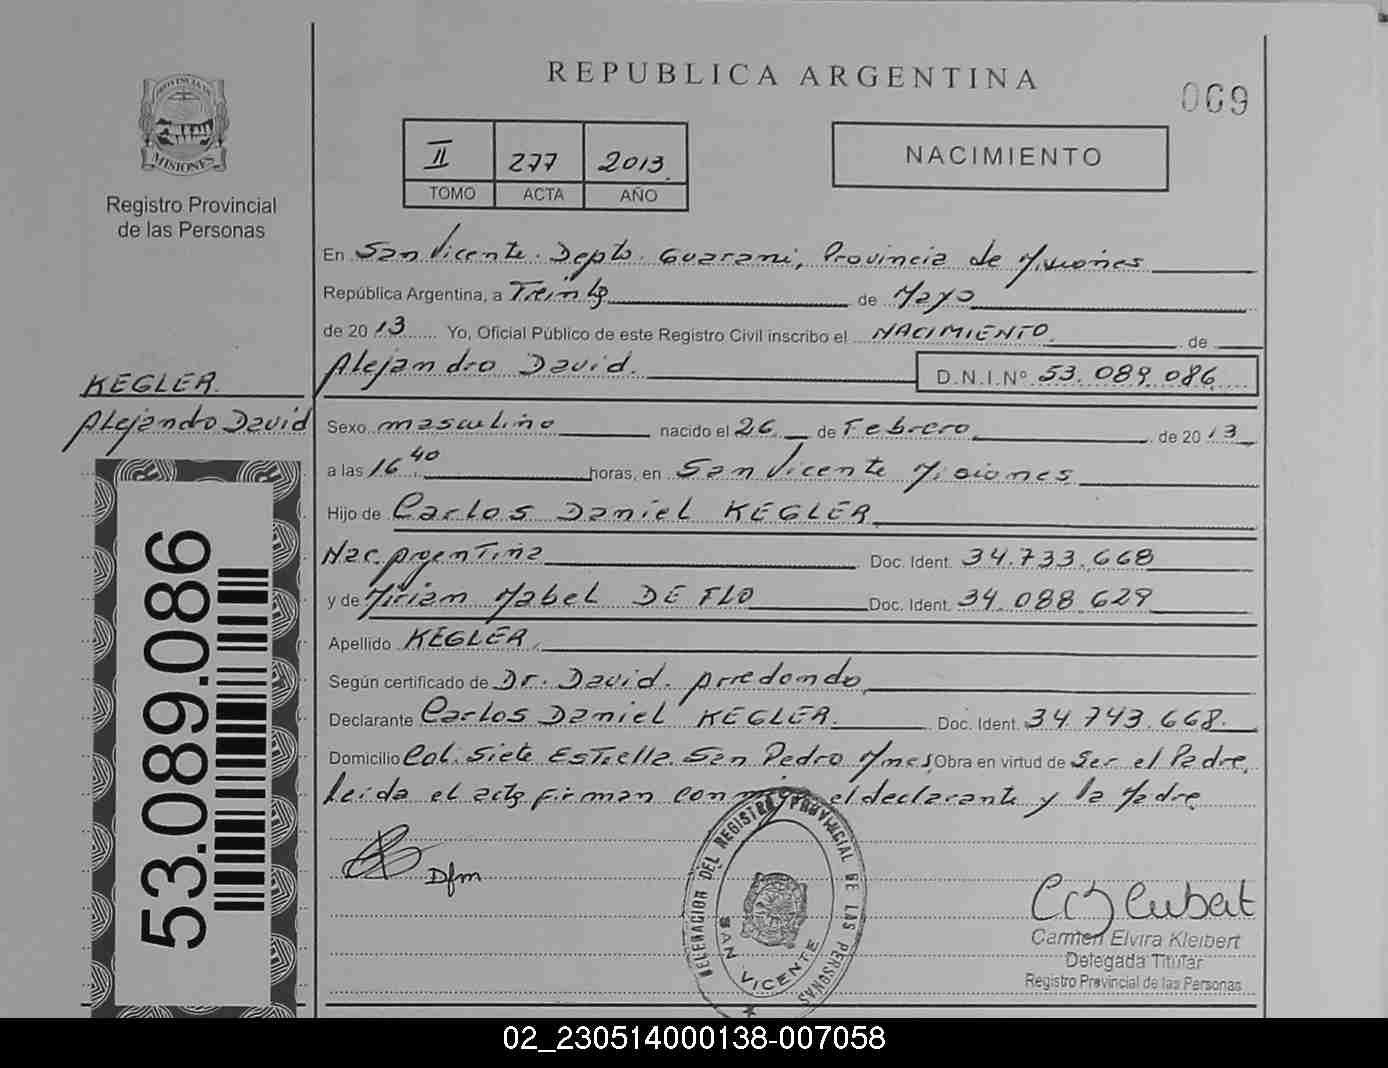 REPUBLICA ARGENTINA
069
PROVINCIA DE
MISIONES
Registro Provincial
de las Personas
II 277 2013
TOMO ACTA AÑO
NACIMIENTO
En San Vicente. Depto. Guarani, Provincia de Misiones
República Argentina, a Treinta de Mayo
de 2013 Yo, Oficial Público de este Registro Civil inscribo el NACIMIENTO de
Alejandro David. D.N.I.Nº 53.089.086
KEGLER.
Alejandro David
Sexo masculino nacido el 26 de Febrero de 2013
a las 16 40 horas, en San Vicente Misiones
Hijo de Carlos Daniel KEGLER
Nac. Argentina Doc. Ident. 34.733.668
y de Miriam Mabel DE FLO Doc. Ident. 34.088.629
Apellido KEGLER
Según certificado de Dr. David. Arredondo
Declarante Carlos Daniel KEGLER. Doc. Ident. 34.743.668.
Domicilio Col. Siete Estrella San Pedro Mnes, Obra en virtud de Ser el Padre,
Leida el acta firman conmigo el declarante y la Madre
53.089.086
Dfm
DELEGACION DEL REGISTRO PROVINCIAL DE LAS PERSONAS
SAN VICENTE
Carmen Elvira Kleibert
Delegada Titular
Registro Provincial de las Personas
02_230514000138-007058